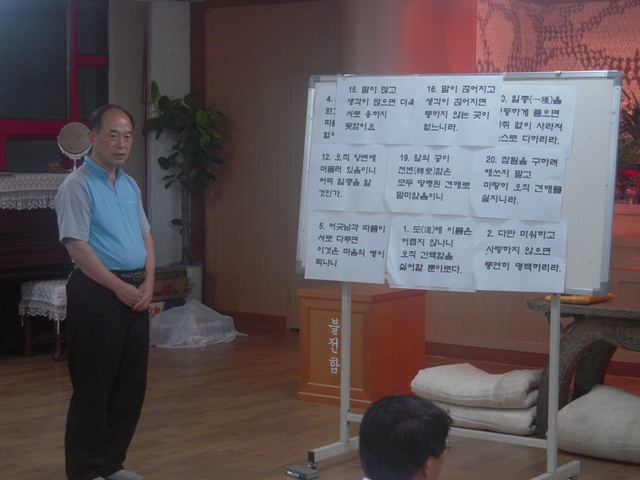 15. 말이 많고
생각이 많으면 더욱
서로 응하지
못함이요.
16. 말이 끊어지고
생각이 끊어지면
통하지 않는 곳이
없느니라.
일종(一種)을
하게 품으면
없이 사라져
다하리라.
12. 오직 양변에
머물러 있음이니
어찌 일종을 알
것인가.
19. 앞의 공이
전변(轉變)함은
모두 망령된 견해로
말미암음이니
20. 참됨을 구하려
애쓰지 말고
마땅히 오직 견해를
쉴지니라.
5. 어긋남과 따름이
서로 다투면
이것은 마음의 병이
되나니
1. 도(道)에 이름은
어렵지 않나니
오직 간택함을
싫어할 뿐이로다.
2. 다만 미워하고
사랑하지 않으면
통연히 명백하리라.
불전함